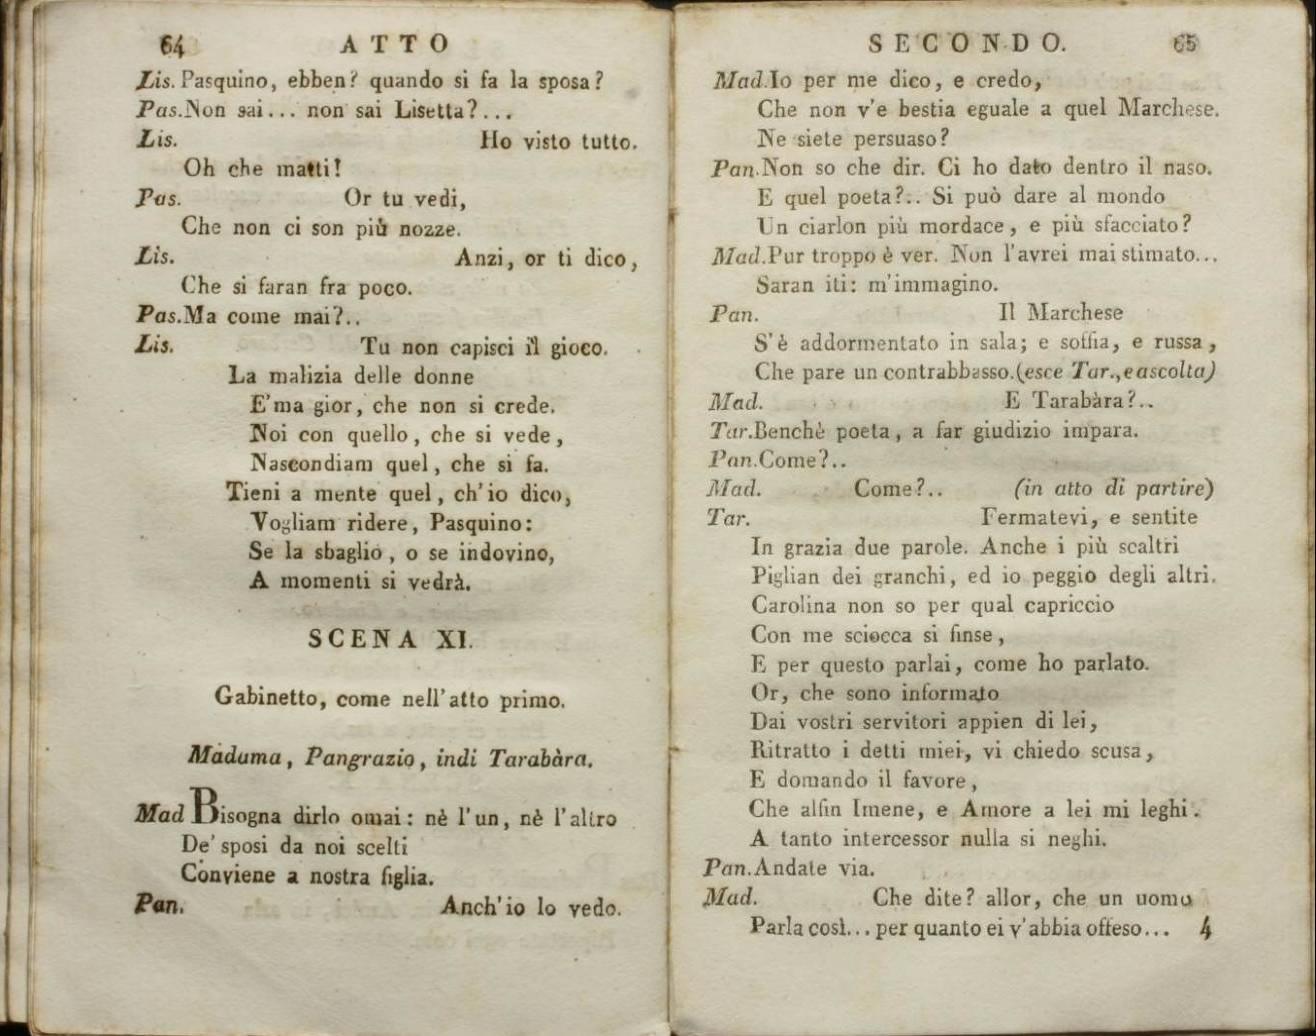 64 ATTO
Lis. Pasquino, ebben? quando si fa la sposa?
Pas. Non sai... non sai Lisetta?...
Lis. Ho visto tutto.
Oh che matti!
Pas. Or tu vedi,
Che non ci son più nozze.
Lis. Anzi, or ti dico,
Che si faran fra poco.
Pas. Ma come mai?..
Lis. Tu non capisci il gioco.
La malizia delle donne
E' ma gior, che non si crede.
Noi con quello, che si vede,
Nascondiam quel, che si fa.
Tieni a mente quel, ch'io dico,
Vogliam ridere, Pasquino:
Se la sbaglio, o se indovino,
A momenti si vedrà.
SCENA XI.
Gabinetto, come nell'atto primo.
Madama, Pangrazio, indi Tarabàra.
Mad Bisogna dirlo omai: nè l'un, nè l'altro
De' sposi da noi scelti
Conviene a nostra figlia.
Pan. Anch'io lo vedo.
SECONDO. 65
Mad. Io per me dico, e credo,
Che non v'e bestia eguale a quel Marchese.
Ne siete persuaso?
Pan. Non so che dir. Ci ho dato dentro il naso.
E quel poeta?.. Si può dare al mondo
Un ciarlon più mordace, e più sfacciato?
Mad. Pur troppo è ver. Non l'avrei mai stimato...
Saran iti: m'immagino.
Pan. Il Marchese
S'è addormentato in sala; e soffia, e russa,
Che pare un contrabbasso. (esce Tar., e ascolta)
Mad. E Tarabàra?..
Tar. Benchè poeta, a far giudizio impara.
Pan. Come?..
Mad. Come?.. (in atto di partire)
Tar. Fermatevi, e sentite
In grazia due parole. Anche i più scaltri
Piglian dei granchi, ed io peggio degli altri.
Carolina non so per qual capriccio
Con me sciocca si finse,
E per questo parlai, come ho parlato.
Or, che sono informato
Dai vostri servitori appien di lei,
Ritratto i detti miei, vi chiedo scusa,
E domando il favore,
Che alfin Imene, e Amore a lei mi leghi.
A tanto intercessor nulla si neghi.
Pan. Andate via.
Mad. Che dite? allor, che un uomo
Parla così... per quanto ei v'abbia offeso... 4